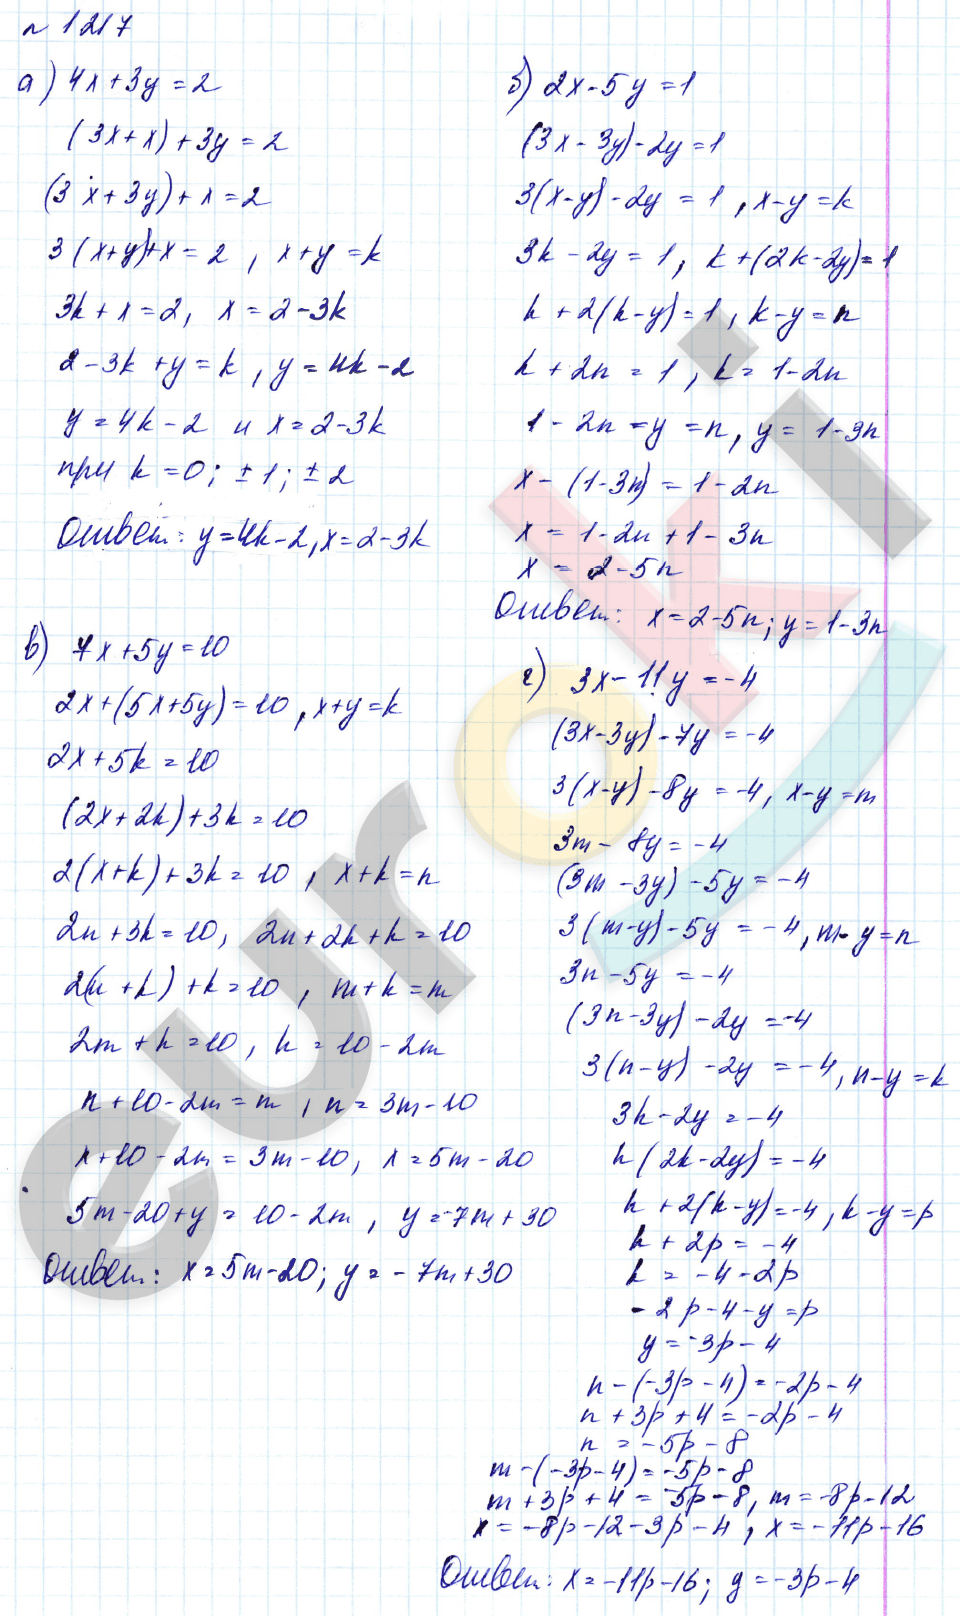 № 1217
а) 4x+3y=2
(3x+x)+3y=2
(3x+3y)+x=2
3(x+y)+x=2, x+y=k
3k+x=2, x=2-3k
2-3k+y=k, y=4k-2
y=4k-2 и x=2-3k
при k=0; ±1; ±2
Ответ: y=4k-2, x=2-3k
б) 2x-5y=1
(3x-3y)-2y=1
3(x-y)-2y=1, x-y=k
3k-2y=1, k+(2k-2y)=1
k+2(k-y)=1, k-y=n
k+2n=1, k=1-2n
1-2n-y=n, y=1-3n
x-(1-3n)=1-2n
x=1-2n+1-3n
x=2-5n
Ответ: x=2-5n; y=1-3n
в) 7x+5y=10
2x+(5x+5y)=10, x+y=k
2x+5k=10
(2x+2k)+3k=10
2(x+k)+3k=10, x+k=n
2n+3k=10, 2n+2k+k=10
2(n+k)+k=10, m+k=m
2m+k=10, k=10-2m
n+10-2m=m, n=3m-10
x+10-2m=3m-10, x=5m-20
5m-20+y=10-2m, y=-7m+30
Ответ: x=5m-20; y=-7m+30
г) 3x-11y=-4
(3x-3y)-7y=-4
3(x-y)-8y=-4, x-y=m
3m-8y=-4
(3m-3y)-5y=-4
3(m-y)-5y=-4, m-y=n
3n-5y=-4
(3n-3y)-2y=-4
3(n-y)-2y=-4, n-y=k
3k-2y=-4
k(2k-2y)=-4
k+2(k-y)=-4, k-y=p
k+2p=-4
k=-4-2p
-2p-4-y=p
y=-3p-4
n-(-3p-4)=-2p-4
n+3p+4=-2p-4
n=-5p-8
m-(-3p-4)=-5p-8
m+3p+4=-5p-8, m=-8p-12
x=-8p-12-3p-4, x=-11p-16
Ответ: x=-11p-16; y=-3p-4
euroki